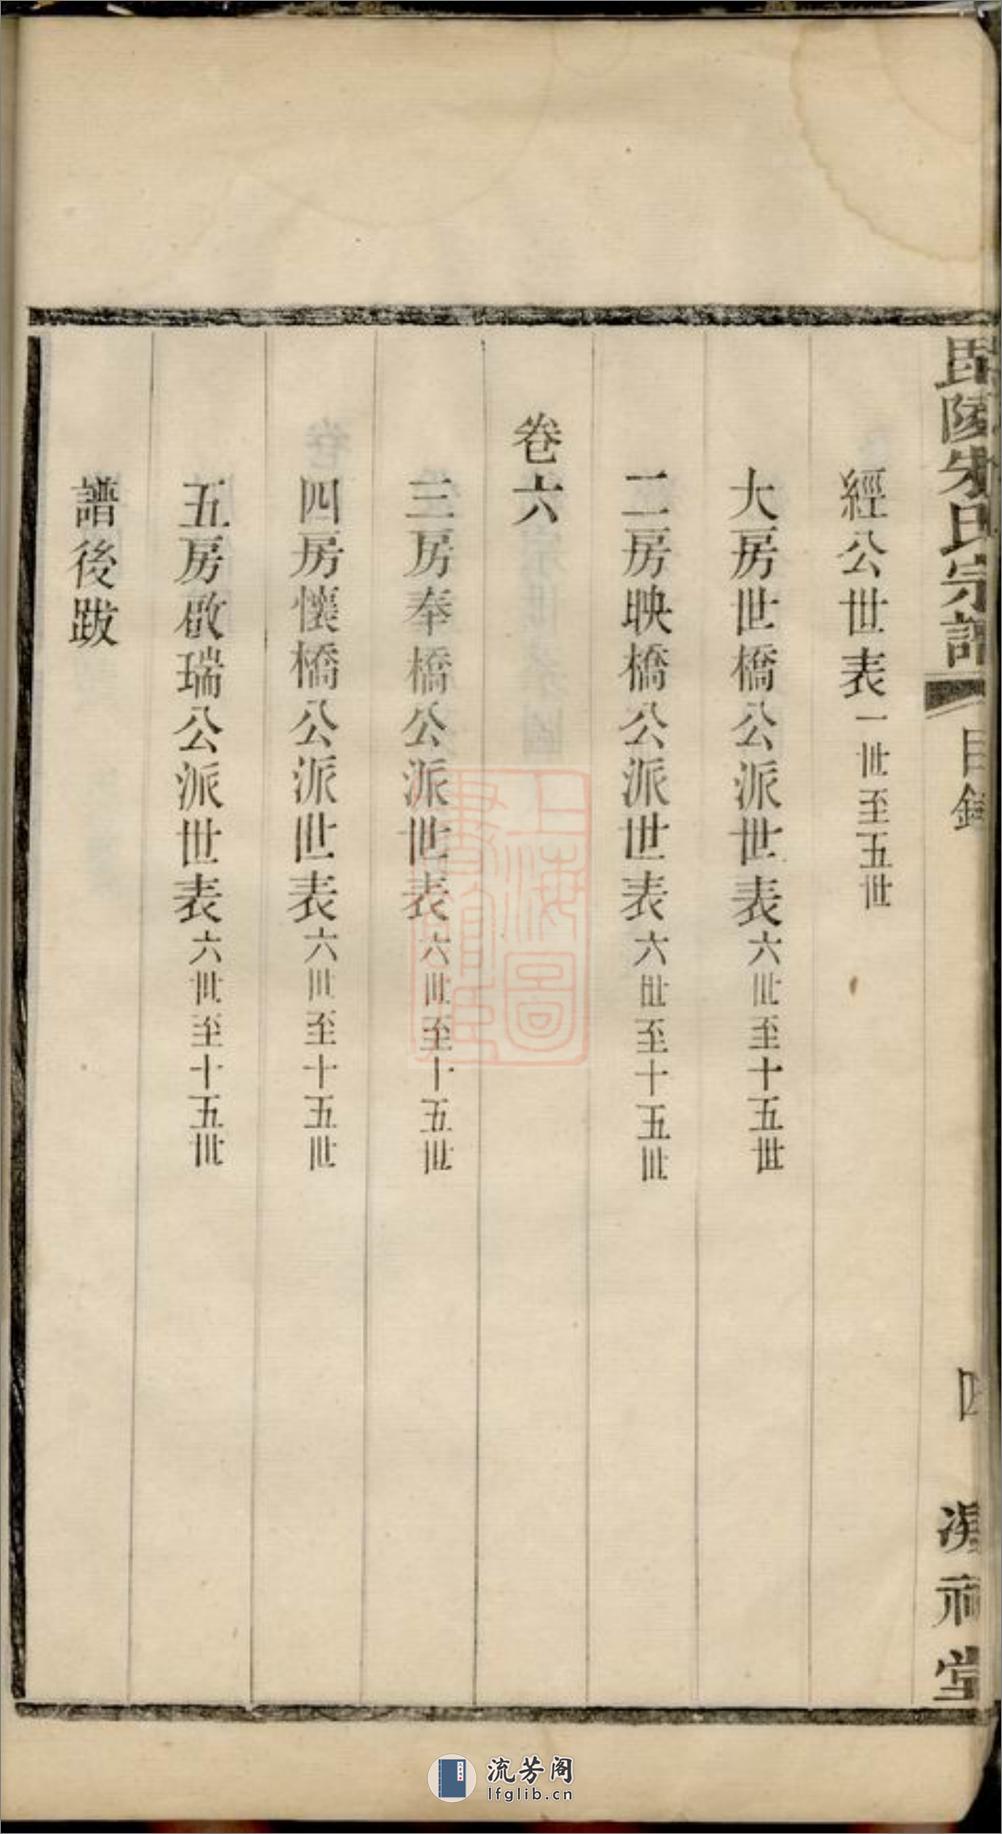 毘陵朱氏宗譜
目錄
四
堂
經公世表一世至五世
大房世橋公派世表六世至十五世
二房映橋公派世表六世至十五世
卷六
三房奉橋公派世表六世至十五世
四房懷橋公派世表六世至十五世
五房啟瑞公派世表六世至十五世
譜後跋
上海圖書館藏
流芳阁
lfglib.cn